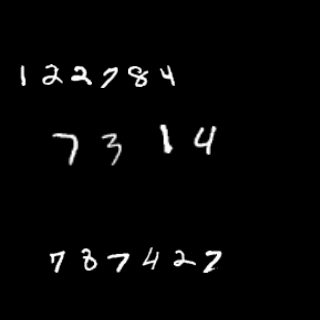 122784
7314
787427